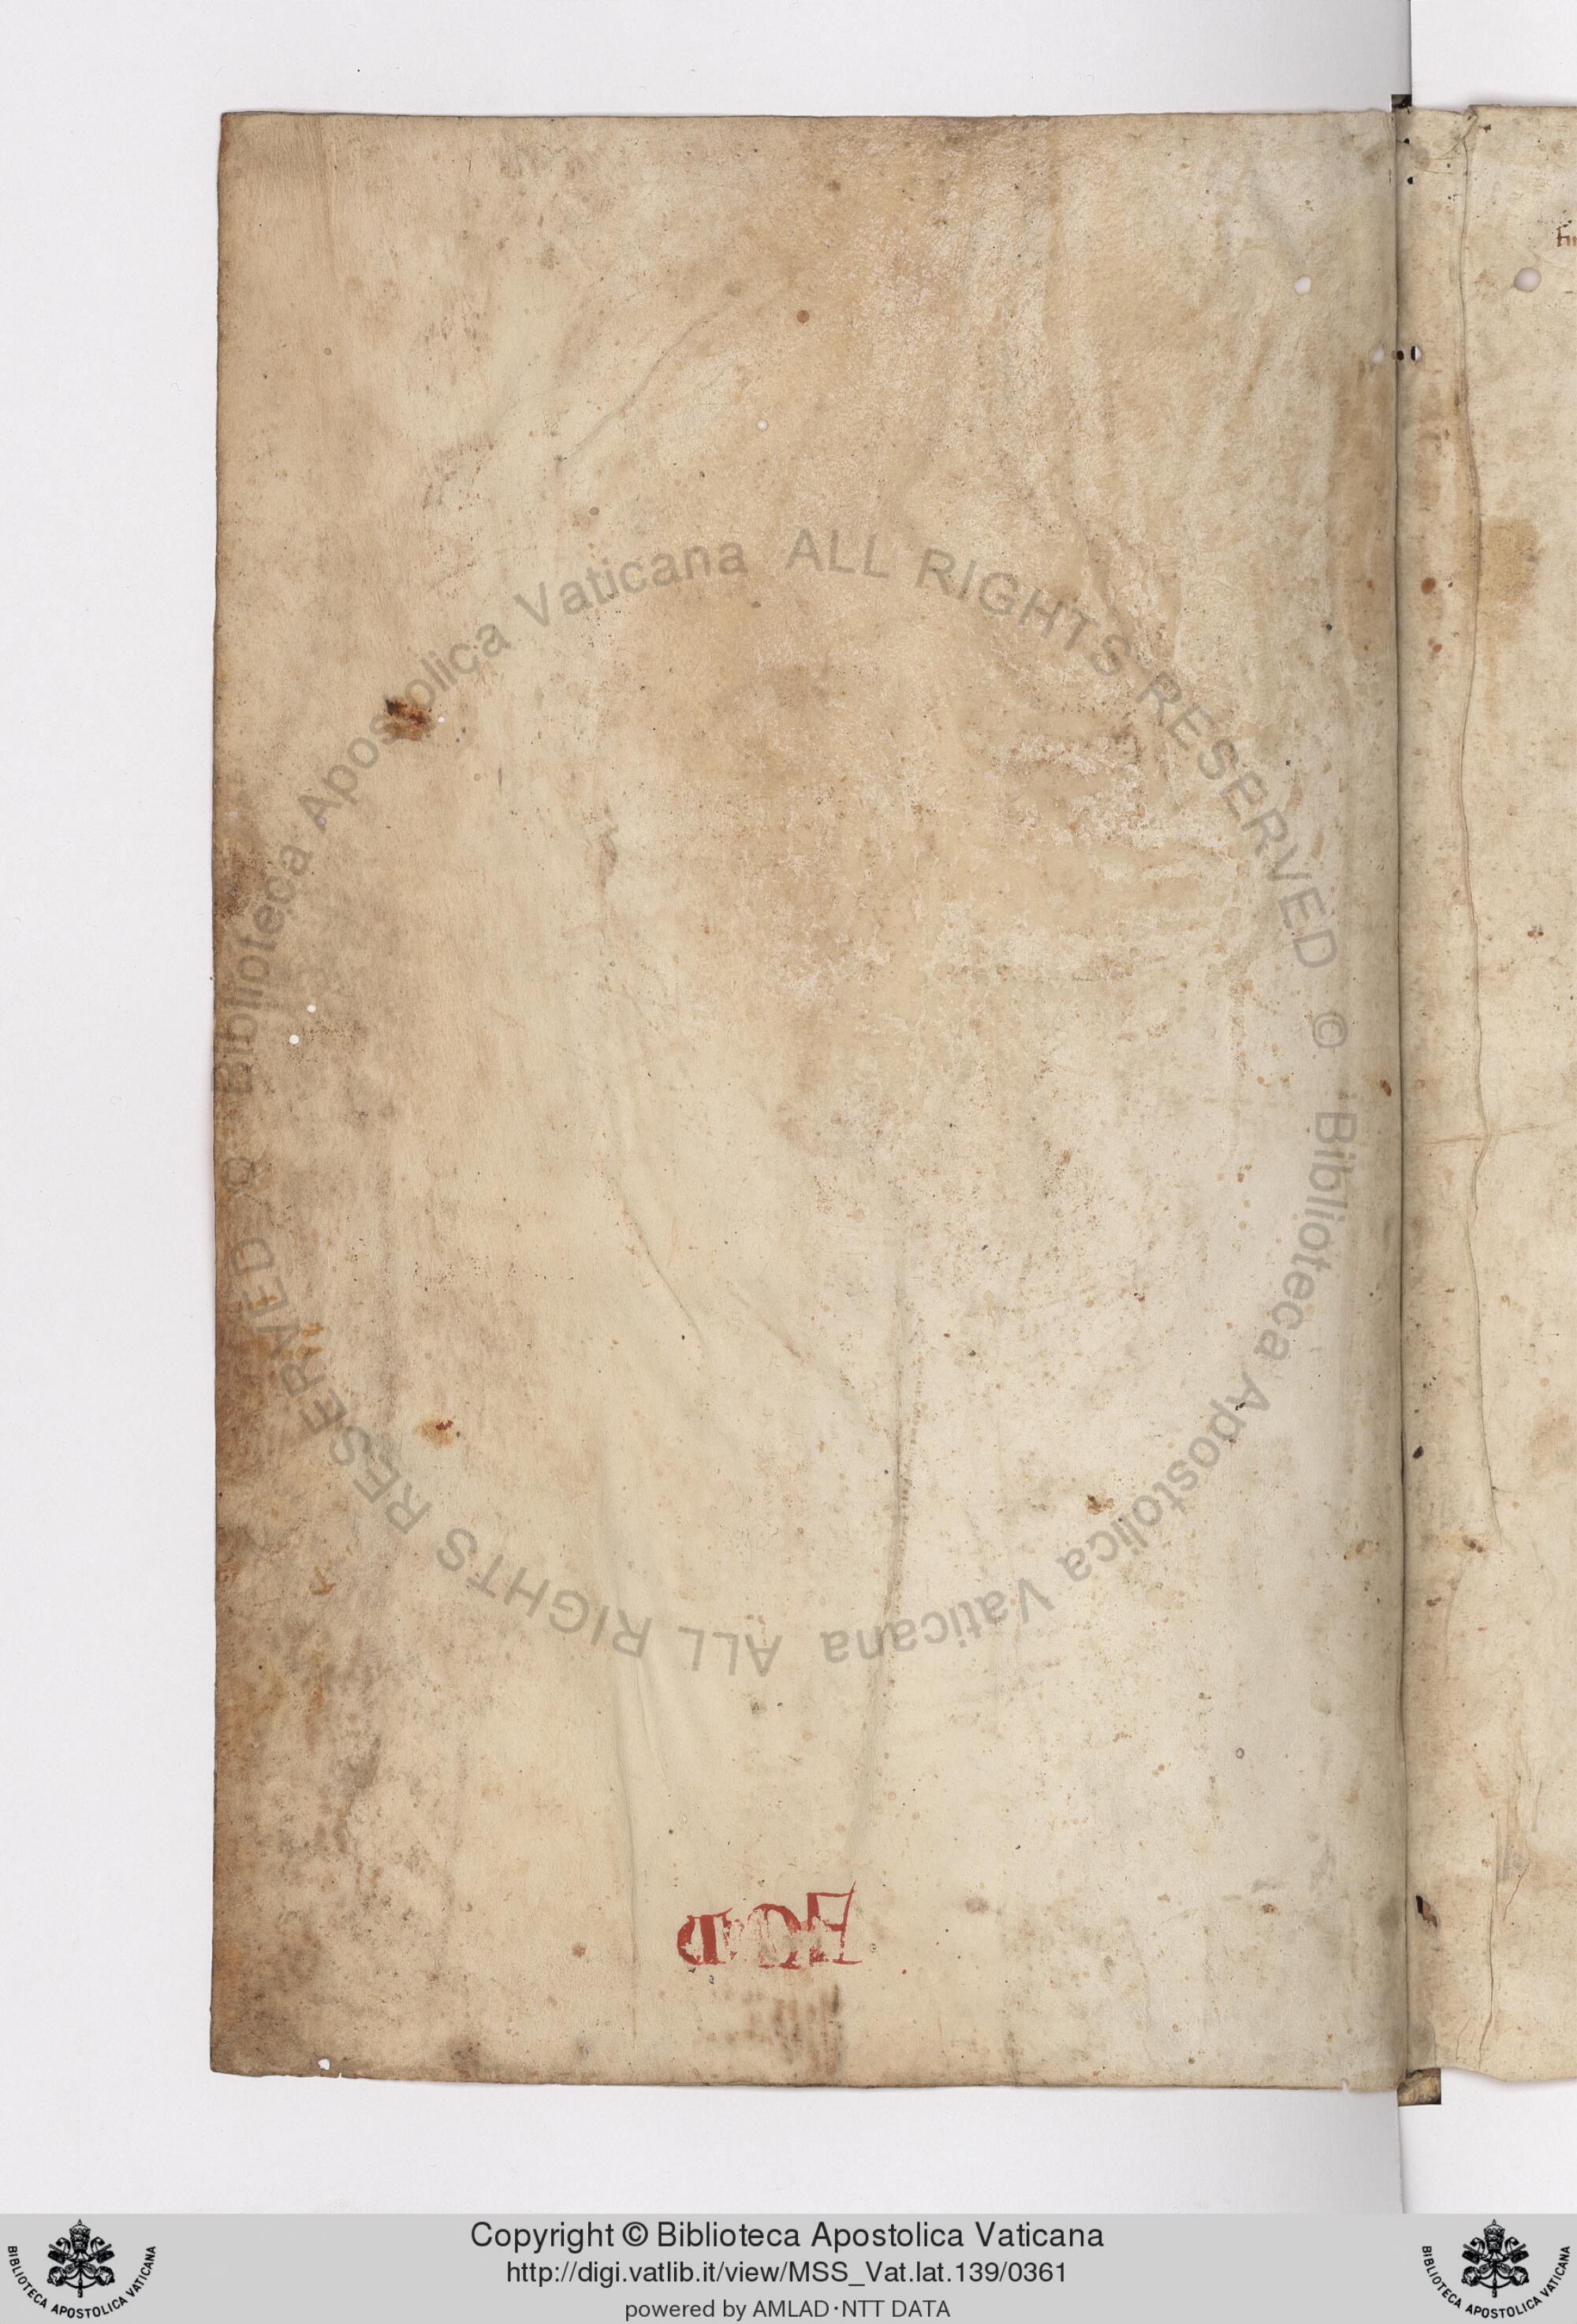 © Biblioteca Apostolica Vaticana ALL RIGHTS RESERVED © Biblioteca Apostolica Vaticana ALL RIGHTS RESERVED
Copyright © Biblioteca Apostolica Vaticana
http://digi.vatlib.it/view/MSS_Vat.lat.139/0361
powered by AMLAD·NTT DATA
BIBLIOTECA APOSTOLICA VATICANA
BIBLIOTECA APOSTOLICA VATICANA